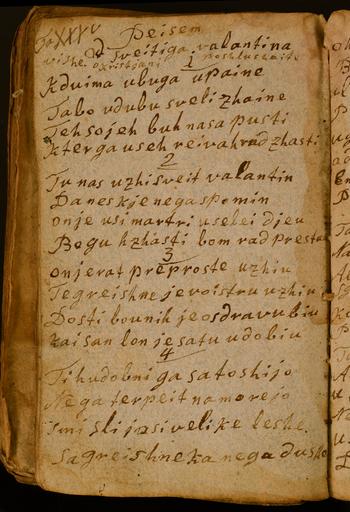 XXXV Peisem
Od Sveitiga valantina
vishe okristjani 1 poshlushaite
Kduima ubuga upaine
Tabo udubu sveli zhaine
Tehsojeh buh nasa pusti
kterga useh reivah rad zhasti
2
Tu nas uzhi sveit valantin
Daneskjenega spomin
onje usi martri useleidjeu
Bogu hzhasti bom rad presta
3
onjerat preproste uzhiu
Tegreishne je voistru uzhiu
Dosti bounih je osdravubiu
kaisan lon je satu udobiu
4
Tihudobni ga satoshijo
Nega terpeit namorejo
imi sli jasi velike leshe
sagreishneka nega dusho